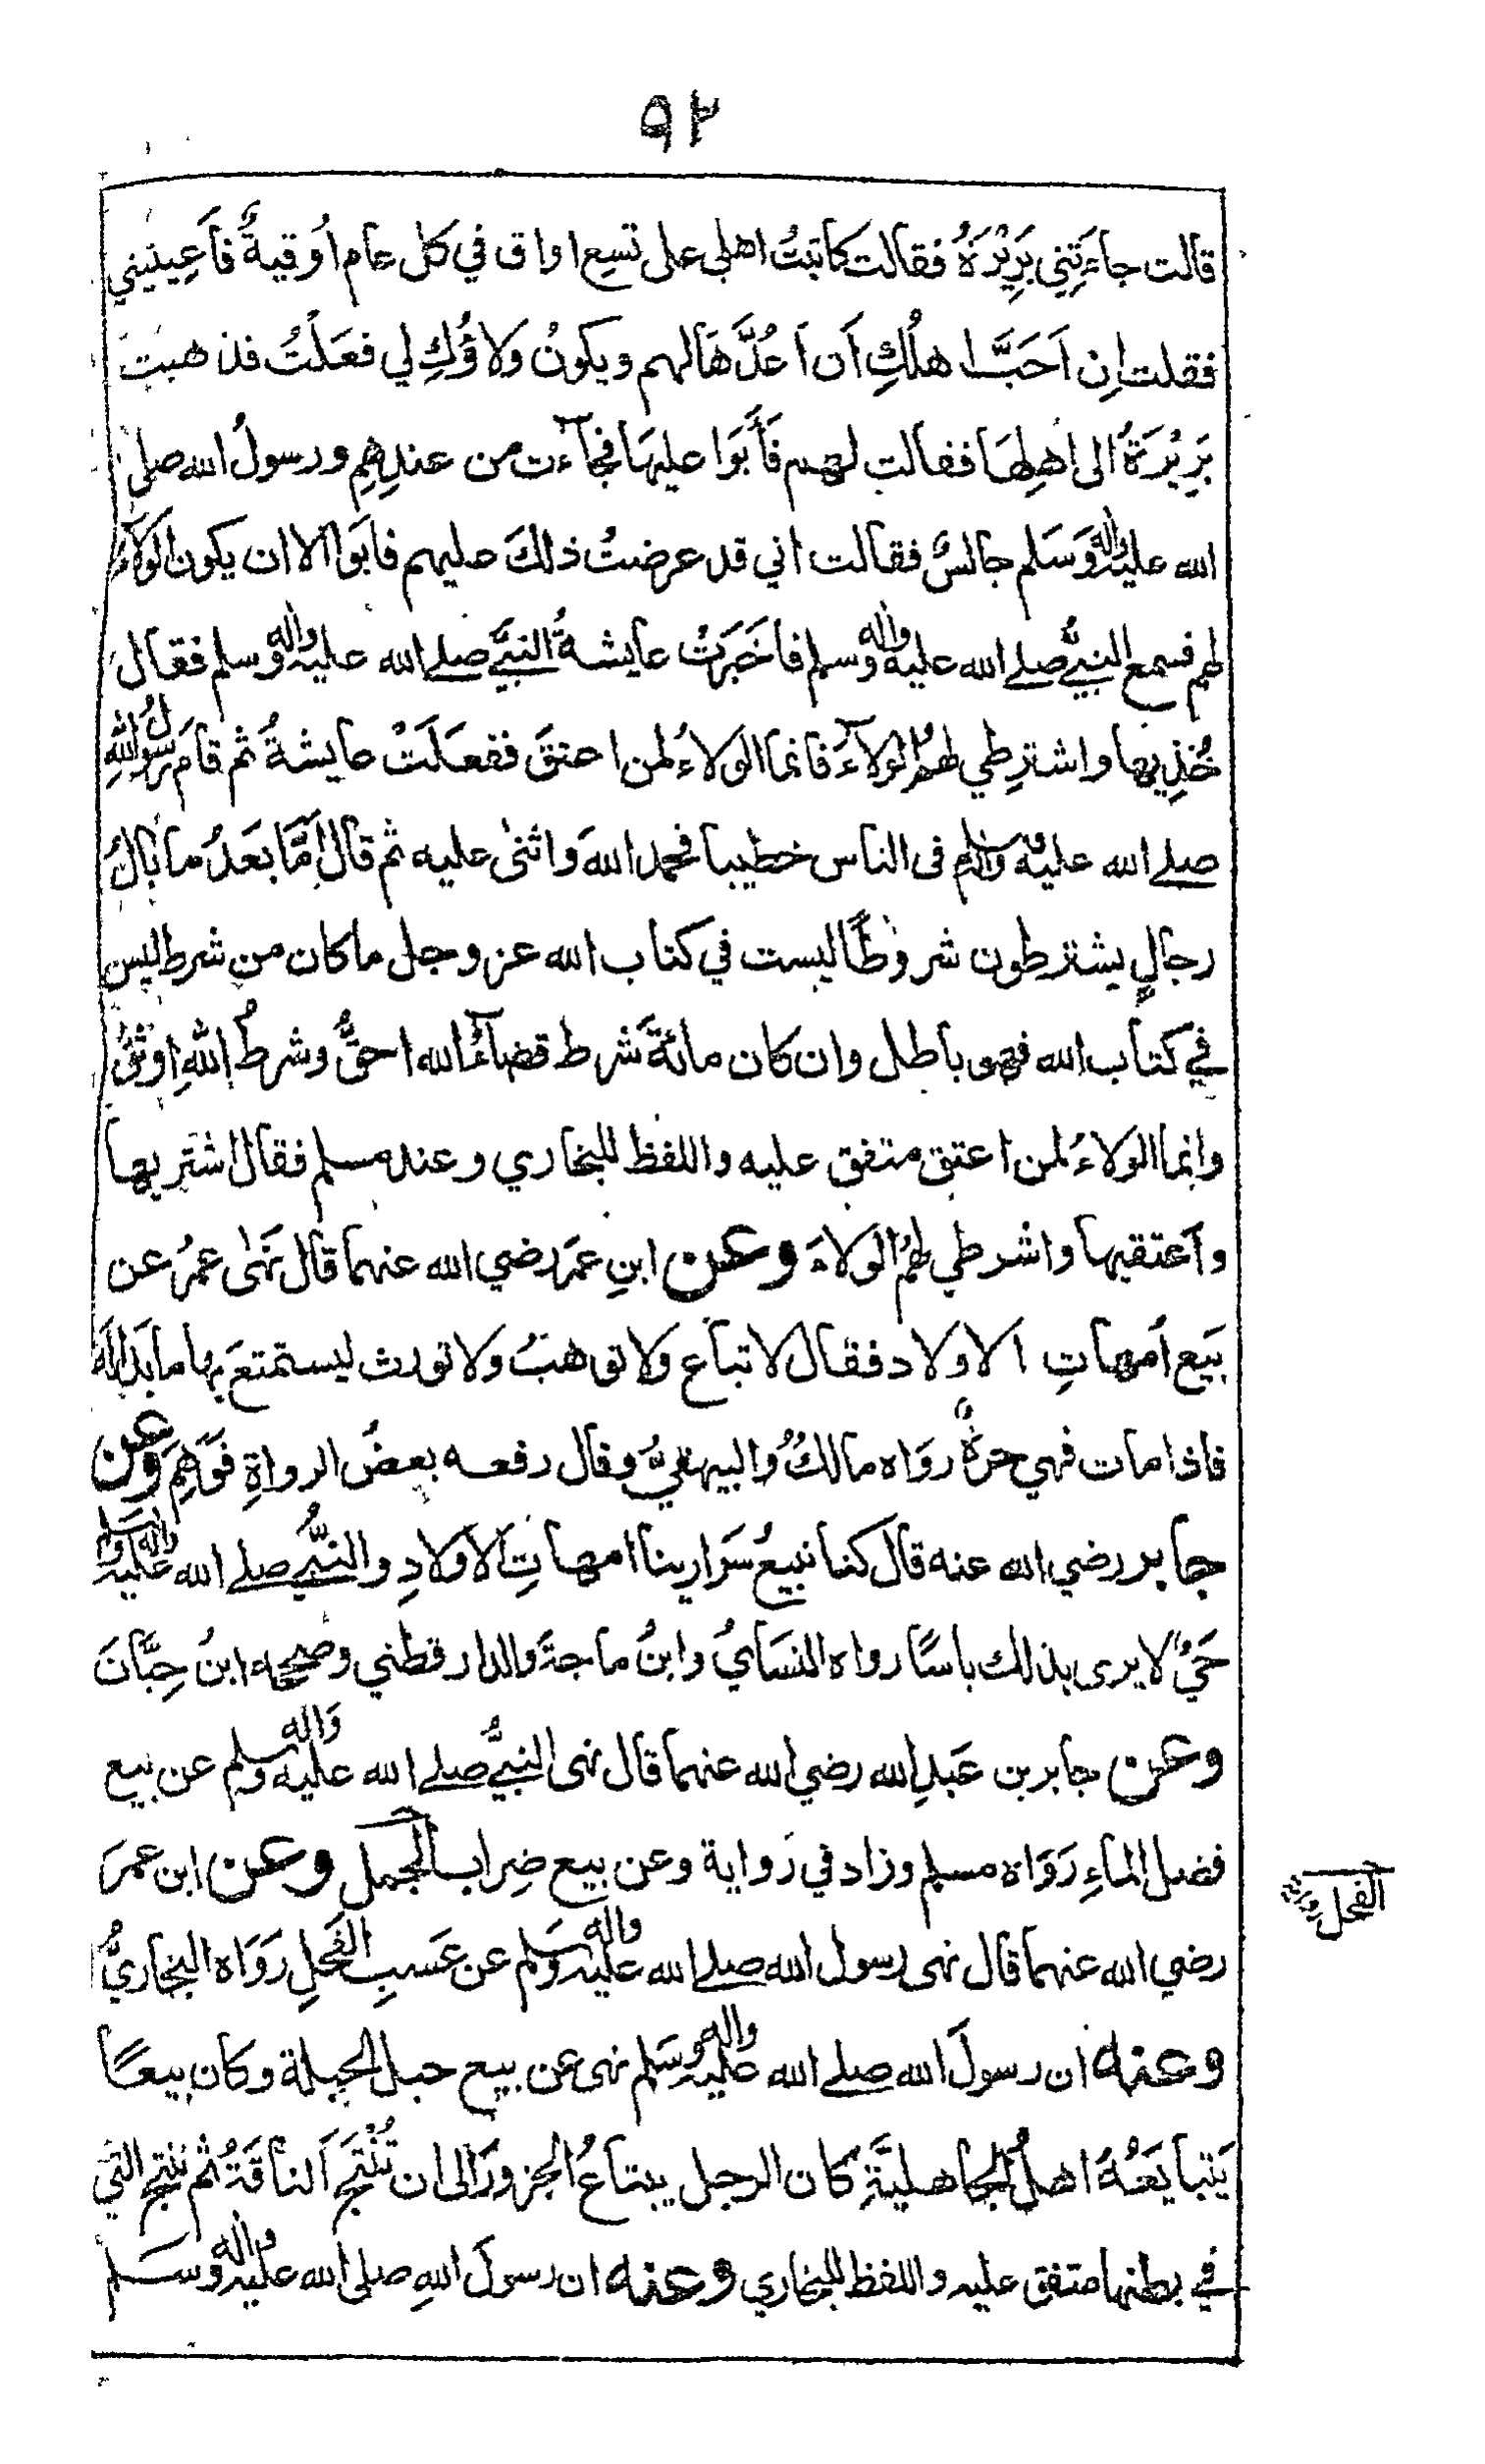 ٩٢
قالت جاءَتِني بَرِيْرَةُ فقالت كاتبتُ اهلي على تسع اواق في كل عام اُوقيةٌ فاَعِينيني
فقلت اِن اَحَبَّ اهلُكِ اَن اَعُدَّهَا لهم ويكونُ ولاؤُكِ لي فعَلْتُ فذهبَت
بَرِيْرَةُ الى اَهلِهَا فقالت لهم فَأَبَوا عليهَا فجآءت من عندِهِم ورسولُ الله صلى
الله عليه واله وَسَلم جالسٌ فقالت اني قد عرضتُ ذلكَ عليهم فابَوا الا ان يكون الولآءُ
لهم فسمع النبيُّ صلے الله عليه واله وسلم فاَخبَرَتْ عايشةُ النبيَّ صلے الله عليه واله وسلم فقال
خُذِيها واشترِطي لهمُ الولآءَ فانما الولاءُ لمن اعتقَ ففعَلَتْ عايشةُ ثم قامَ رسولُ اللهِ
صلے الله عليه واله وسلم فى الناس خطيبا فحمد اللهَ واثنىٰ عليه ثم قال اَمَّا بَعدُ ما بَالُ
رجالٍ يشترطون شروطًا ليست في كتاب الله عز وجل ما كان من شرط ليس
في كتاب الله فهو باطل وان كان مائةَ شرط قضاءُ الله احقُّ وشرطُ اللهِ اوثقُ
وانما الولاءُ لمن اعتق متفق عليه واللفظ للبخاري وعند مسلم فقال اشتريها
واَعتقيها واشرطي لهمُ الولاءَ وعن ابنِ عمَر رضي الله عنهما قال نَهَىٰ عمرُ عن
بَيع اُمهاتِ الاولاد فقال لا تباع ولا توهبُ ولا تورث ليستمتعَ بها ما بَدَا لَهُ
فاذا مات فهي حرةٌ روَاه مالكٌ والبيهقيُّ وقال رفعه بعضُ الرواةِ فوَهِمَ وعن
جابر رضي الله عنه قال كنا نبيعُ سَرَارِينا امهاتِ الاَولادِ والنبيُّ صلے الله عليه واله وسلم
حَيٌّ لا يرى بذلك باسًا رواه النسَايُ وابنُ ماجةَ والدارقطني وصححه ابنُ حِبَّانَ
وعن جابر بن عَبدِ الله رضي الله عنهما قال نهى النبيُّ صلے الله عليه واله وسلم عن بيع
فضل الماءِ رَوَاه مسلم وزاد في رَواية وعن بيع ضِرابِ الجمل وعن ابن عمَرَ
الفحل
رضي الله عنهما قال نهى رسول الله صلے الله عليه واله وَسَلم عن عَسبِ الفَحلِ رَوَاه البخاريُّ
وعنه ان رسولَ الله صلے الله عليه واله وسَلم نهى عن بيع حبل الحبلة وكان بيعًا
يَتبايَعُهُ اهلُ الجاهليَّةِ كان الرجل يبتاعُ الجزورَ الى ان تُنْتَجَ اَلناقَةُ ثم تنتج التي
في بطنها متفق عليه واللفظ للبخاري وعنه ان رسولَ اللهِ صلى الله عليه واله وسلم